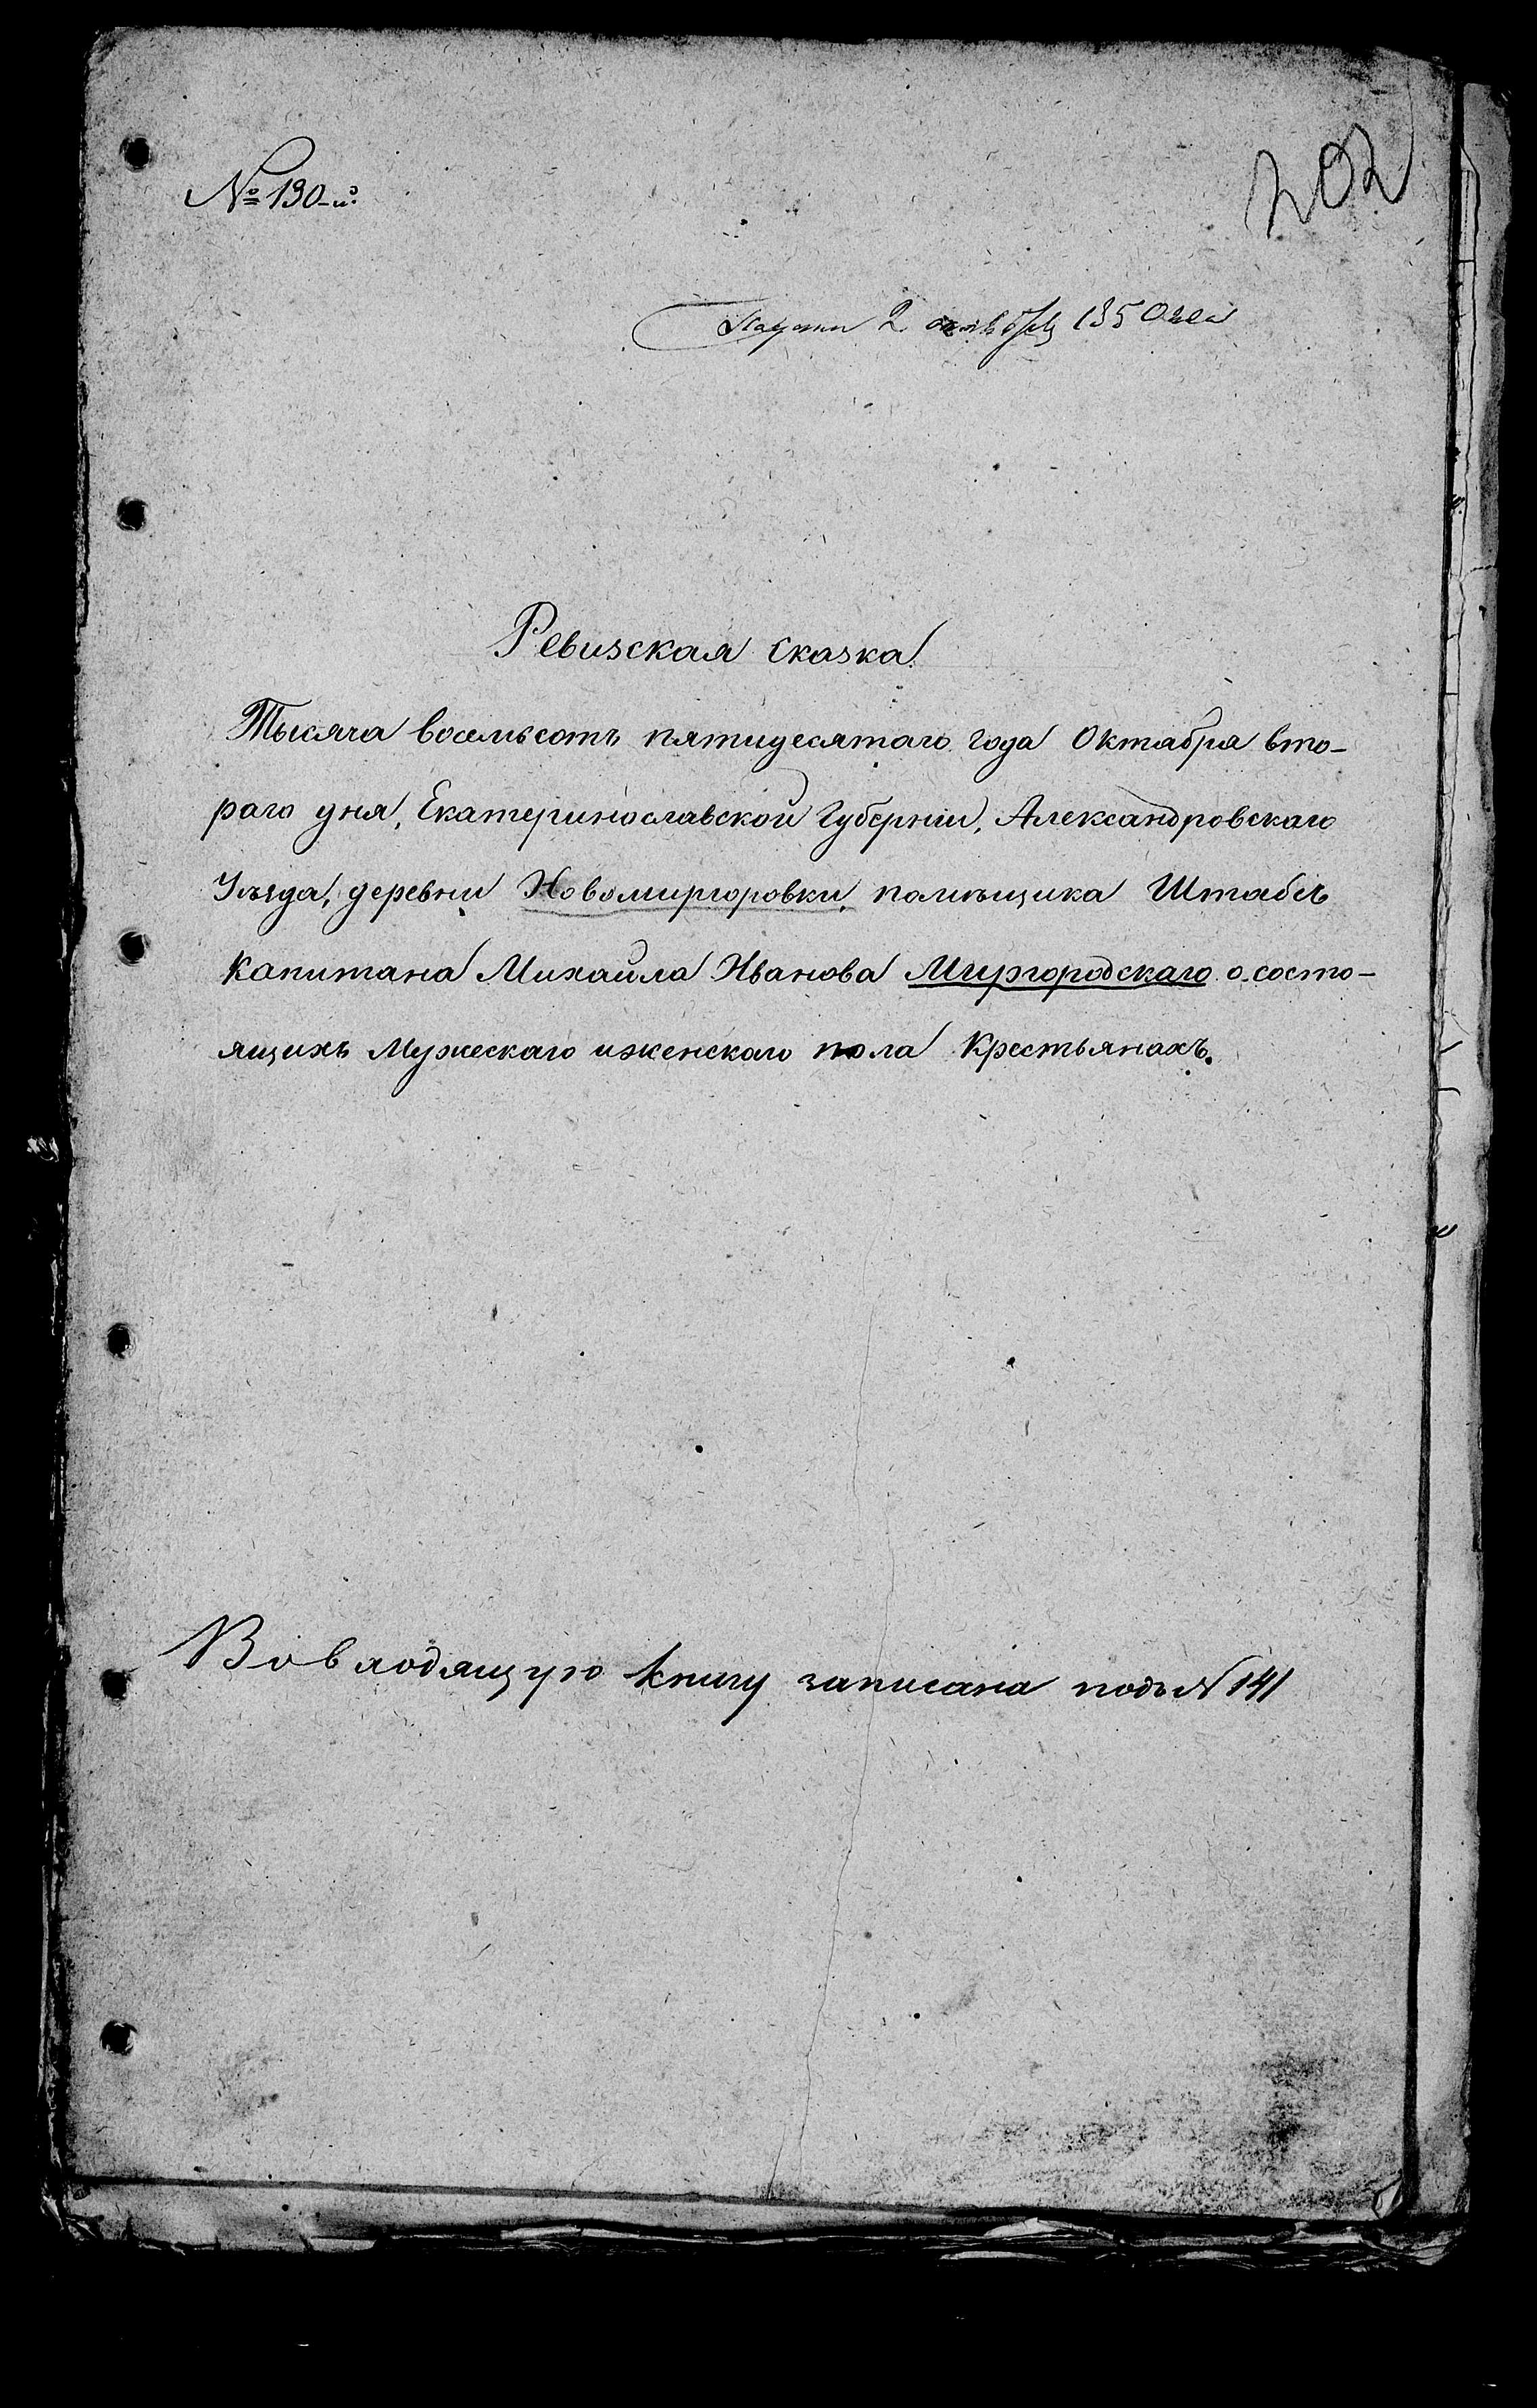 № 130-й.
202
Подана 2 октября 1850 года
Ревизская сказка
Тысяча восемьсотъ пятидесятаго года Октабря вто-
раго дня, Екатеринославской Губерніи, Александровскаго
Уѣзда, деревни Новомиргоровки, помѣщика Штабсъ
Капитана Михайла Иванова Миргородскаго о состо-
ящихъ Мужескаго и женскаго пола Крестьянахъ.
Во входящую книгу записана подъ № 141